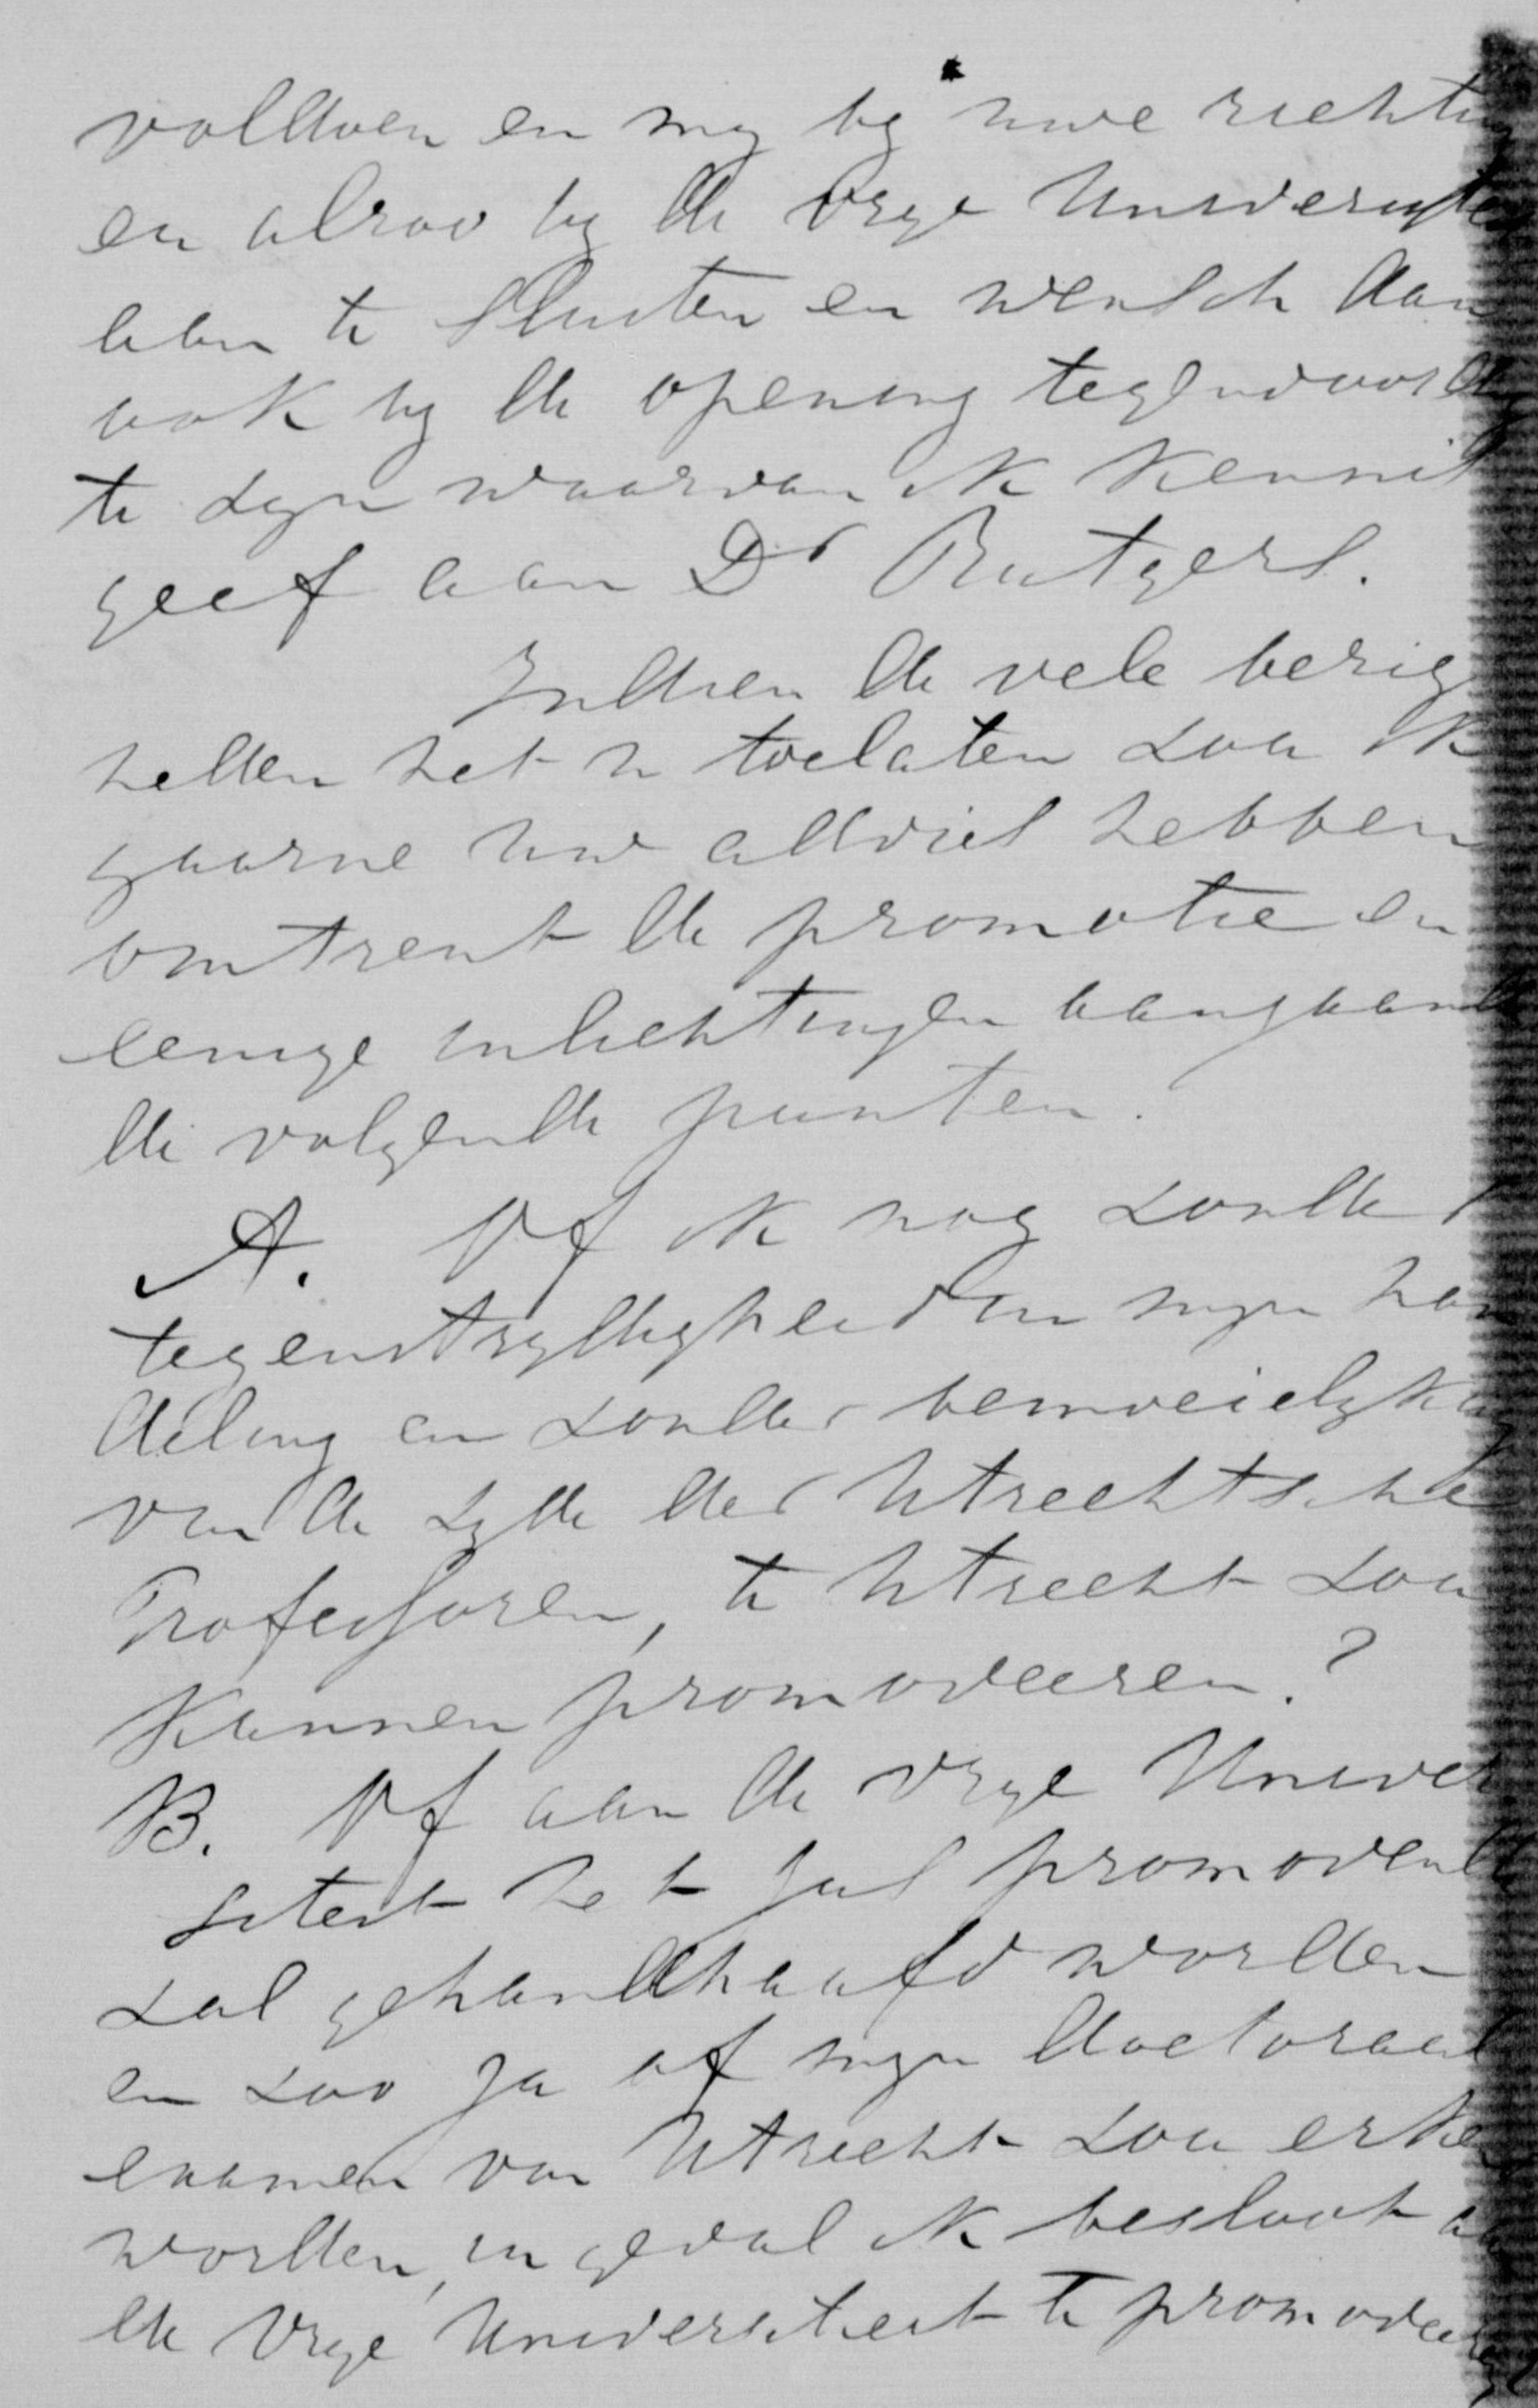 voldoen en my by uwe richting
en alzoo by de Vrye Universiteit
aan te sluiten en wensch dan
ook by de opening tegenwoordig
te zyn waarvan ik kennis
geef aan Dr Rutgers.
Indien de vele bezig
heden het u toelaten zou ik
gaarne uw advies hebben
omtrent de promotie en
eenige inlichtingen aangaande
de volgende punten.
A. Of ik nog zonder
tegenstrydigheid in myn han
deling en zonder bemoeielyking
van de zyde der Utrechtsche
Professoren, te Utrecht zou
kunnen promoveeren?
B. Of aan de vrye Univer
siteit het jus promovendi
zal gehandhaafd worden
en zoo ja of myn doctoraal
examen van Utrecht zou erkend
worden, in geval ik besloot aan
de Vrye Universiteit te promoveeren